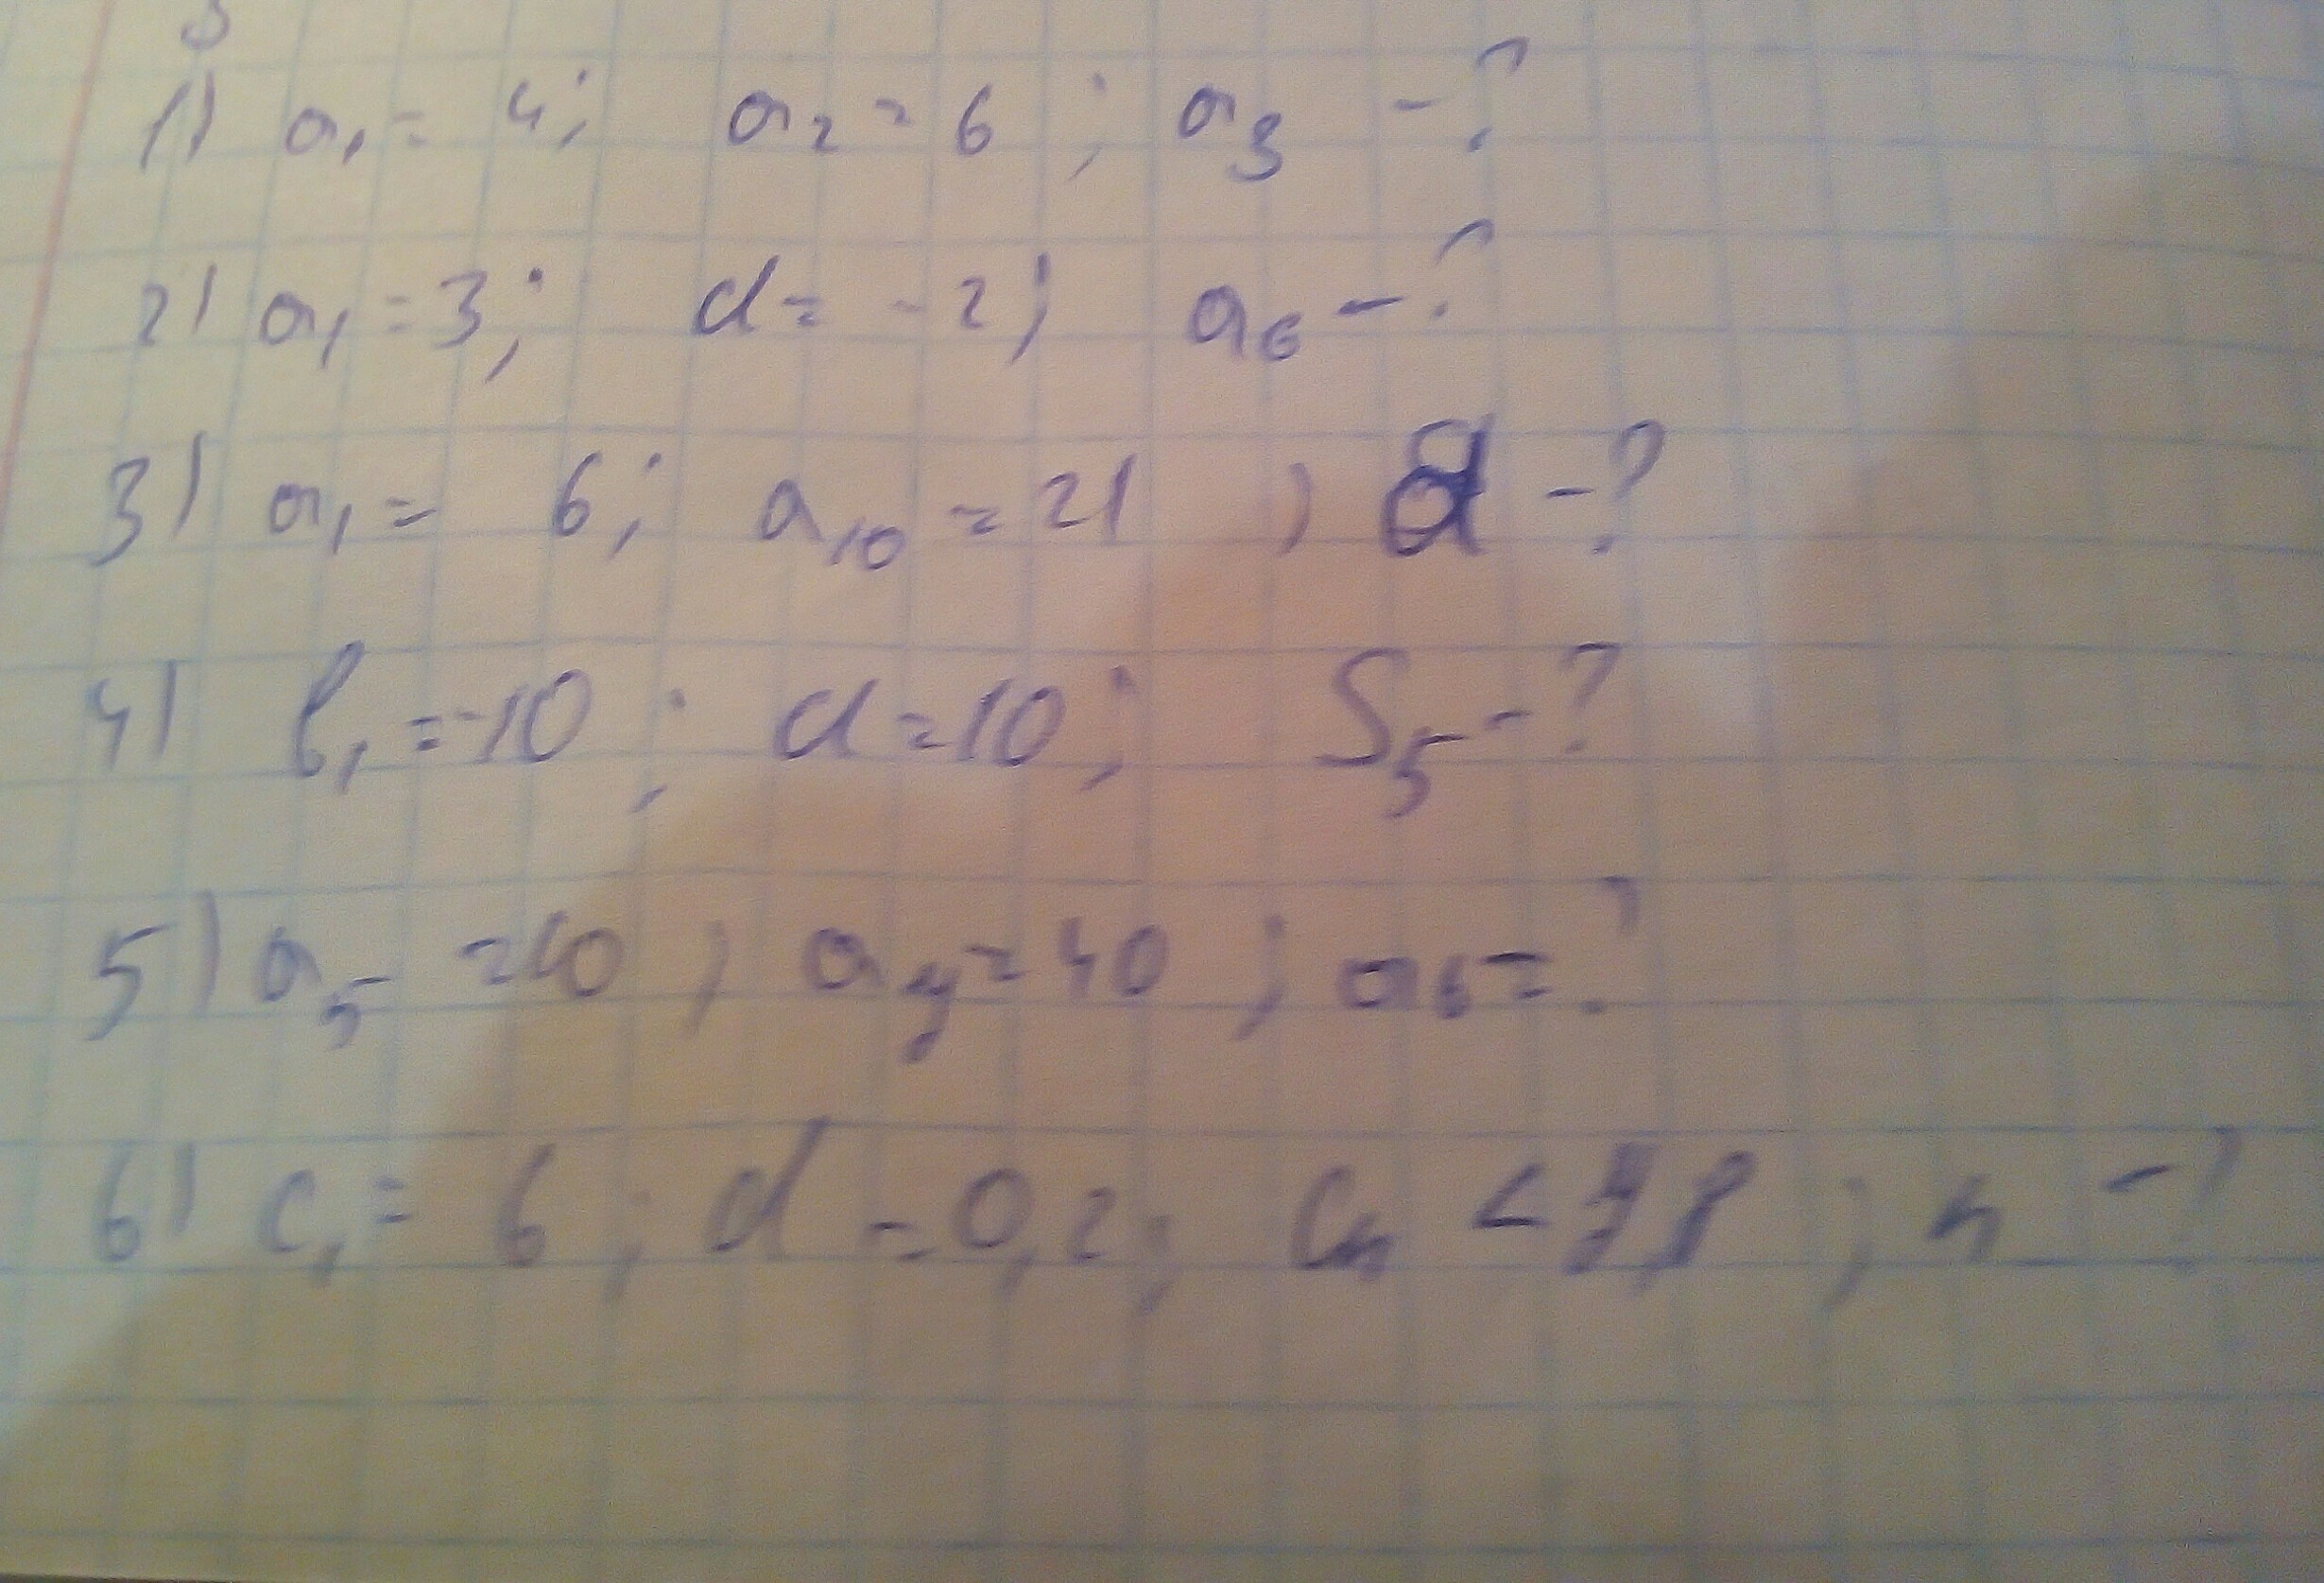 1) a₁ = 4; a₂ = 6; a₃ - ?
2) a₁ = 3; d = -2; a₆ - ?
3) a₁ = 6; a₁₀ = 21; d - ?
4) b₁ = -10; d = 10; S₅ - ?
5) a₅ = 10; a₇ = 40; a₆ = ?
6) c₁ = 6; d = 0,2; cₙ < 7,8; n - ?